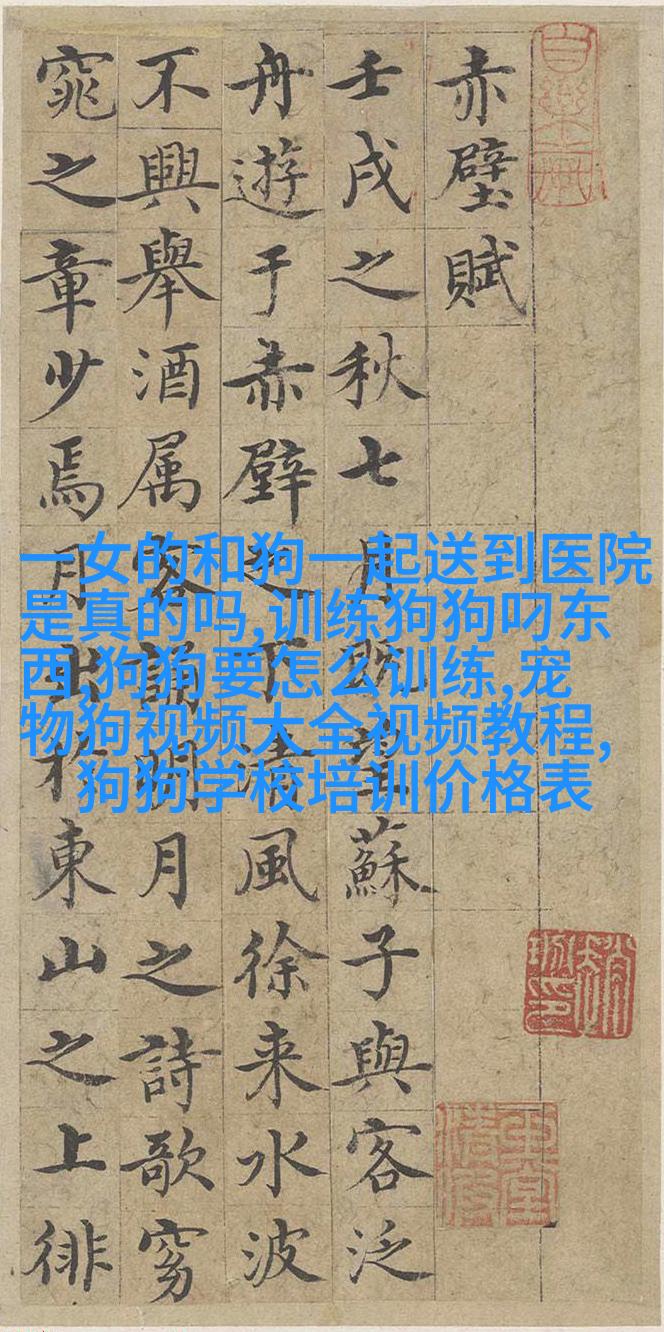 赤壁賦
壬戌之秋七月既望蘇子與客泛
舟遊于赤壁之下清風徐来水波
不興舉酒属客誦明月之詩歌窈
窕之章少焉月出於東山之上徘
一女的和狗一起送到医院
是真的吗,训练狗狗叼东
西,狗狗要怎么训练,宠
物狗视频大全视频教程,
狗狗学校培训价格表